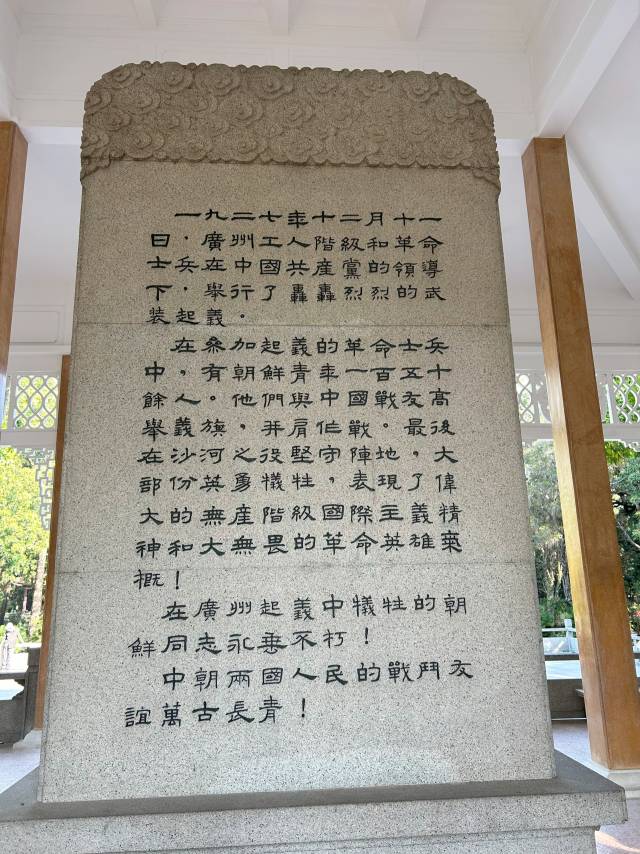 一九二七年十二月十一
日，廣州工人階級和革命
士兵，在中國共產黨的領導
下，舉行了轟轟烈烈的武
裝起義。
在叅加起義的革命士兵
中，有朝鮮青年一百五十
餘人。他們與中國戰友高
舉義旗，并肩作戰。最後
在沙河之役堅守陣地，大
部份英勇犧牲，表現了偉
大的無產階級國際主義精
神和大無畏的革命英雄氣
概！
在廣州起義中犧牲的朝
鮮同志永垂不朽！
中朝兩國人民的戰鬥友
誼萬古長青！